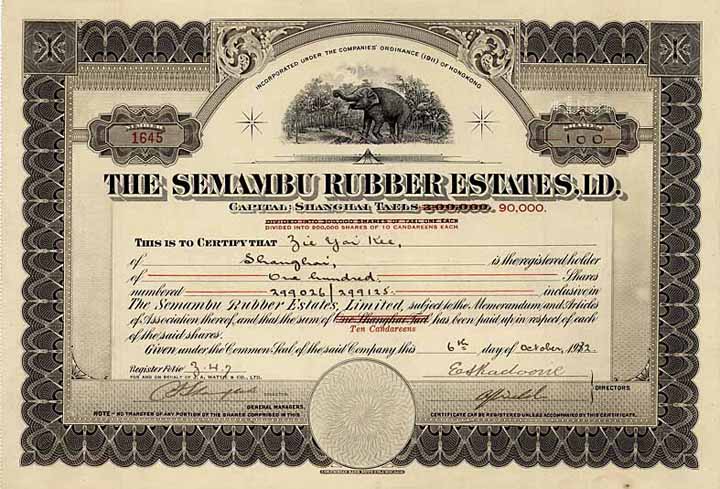 INCORPORATED UNDER THE COMPANIES' ORDINANCE (1911) OF HONGKONG
NUMBER
1645
SHARES
100
THE SEMAMBU RUBBER ESTATES, LD.
CAPITAL: SHANGHAI TAELS 300,000. 90,000.
DIVIDED INTO 300,000 SHARES OF TAEL ONE EACH
DIVIDED INTO 900,000 SHARES OF 10 CANDAREENS EACH
THIS IS TO CERTIFY THAT Zie Yai Kee,
of Shanghai, is the registered holder
of One hundred Shares
numbered 299026/299125 inclusive in
The Semambu Rubber Estates, Limited, subject to the Memorandum and Articles
of Association thereof, and that the sum of One Shanghai Tael has been paid up in respect of each
Ten Candareens
of the said shares.
Given under the Common Seal of the said Company this 6th day of October, 1932
Register Folio Z.4.7
FOR AND ON BEHALF OF J. A. WATTIE & CO., LTD.
DIRECTORS
GENERAL MANAGERS.
NOTE - NO TRANSFER OF ANY PORTION OF THE SHARES COMPRISED IN THIS
CERTIFICATE CAN BE REGISTERED UNLESS ACCOMPANIED BY THIS CERTIFICATE.